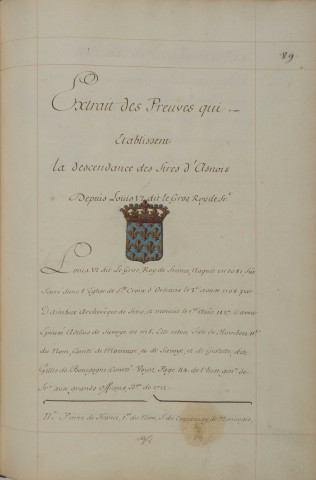 89
Extrait des Preuves qui
Etablissent
la descendance des Sires d'Asnois
Depuis Louis VI dit le Gros Roy de Fr.
Louis VI dit Le Gros, Roy de france, naquit en 1081 fut
Sacré dans l'Eglise de Ste Croix d'Orleans le 3e aoust 1108 par
Archevêque de Sens, et mourut le 1er Aoust 1137. il avoit
Epousé Adélais de Savoye en 1115. Elle etoit fille de Humbert IIe
du Nom, Comte de Maurienne et de Savoye, et de Gislette, d.te
Gille de Bourgogne Comté. Voyez Page 114. de l'hist. gen. de
Fr. aux grands Officiers
Pierre de France, 1er du Nom, S. de Courtenay, de Montargis